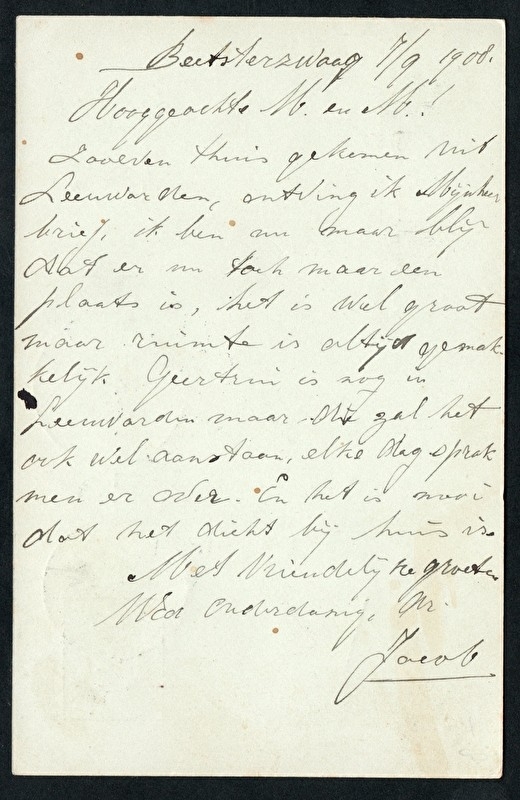 Beetsterzwaag 7/9 1908.
Hooggeachte M. en M.!
Zooeven thuis gekomen uit
Leeuwarden, ontving ik Mijnheer
brief, ik ben nu maar blij
dat er nu toch maar een
plaats is, het is wel groot
maar ruimte is altijd gemak-
kelijk. Geertrui is nog in
Leeuwarden maar die zal het
ook wel aanstaan, elke dag sprak
men er over. En het is mooi
dat het dicht bij huis is.
Met Vriendelijke groeten
Uwed onderdanig, dr.
Jacob